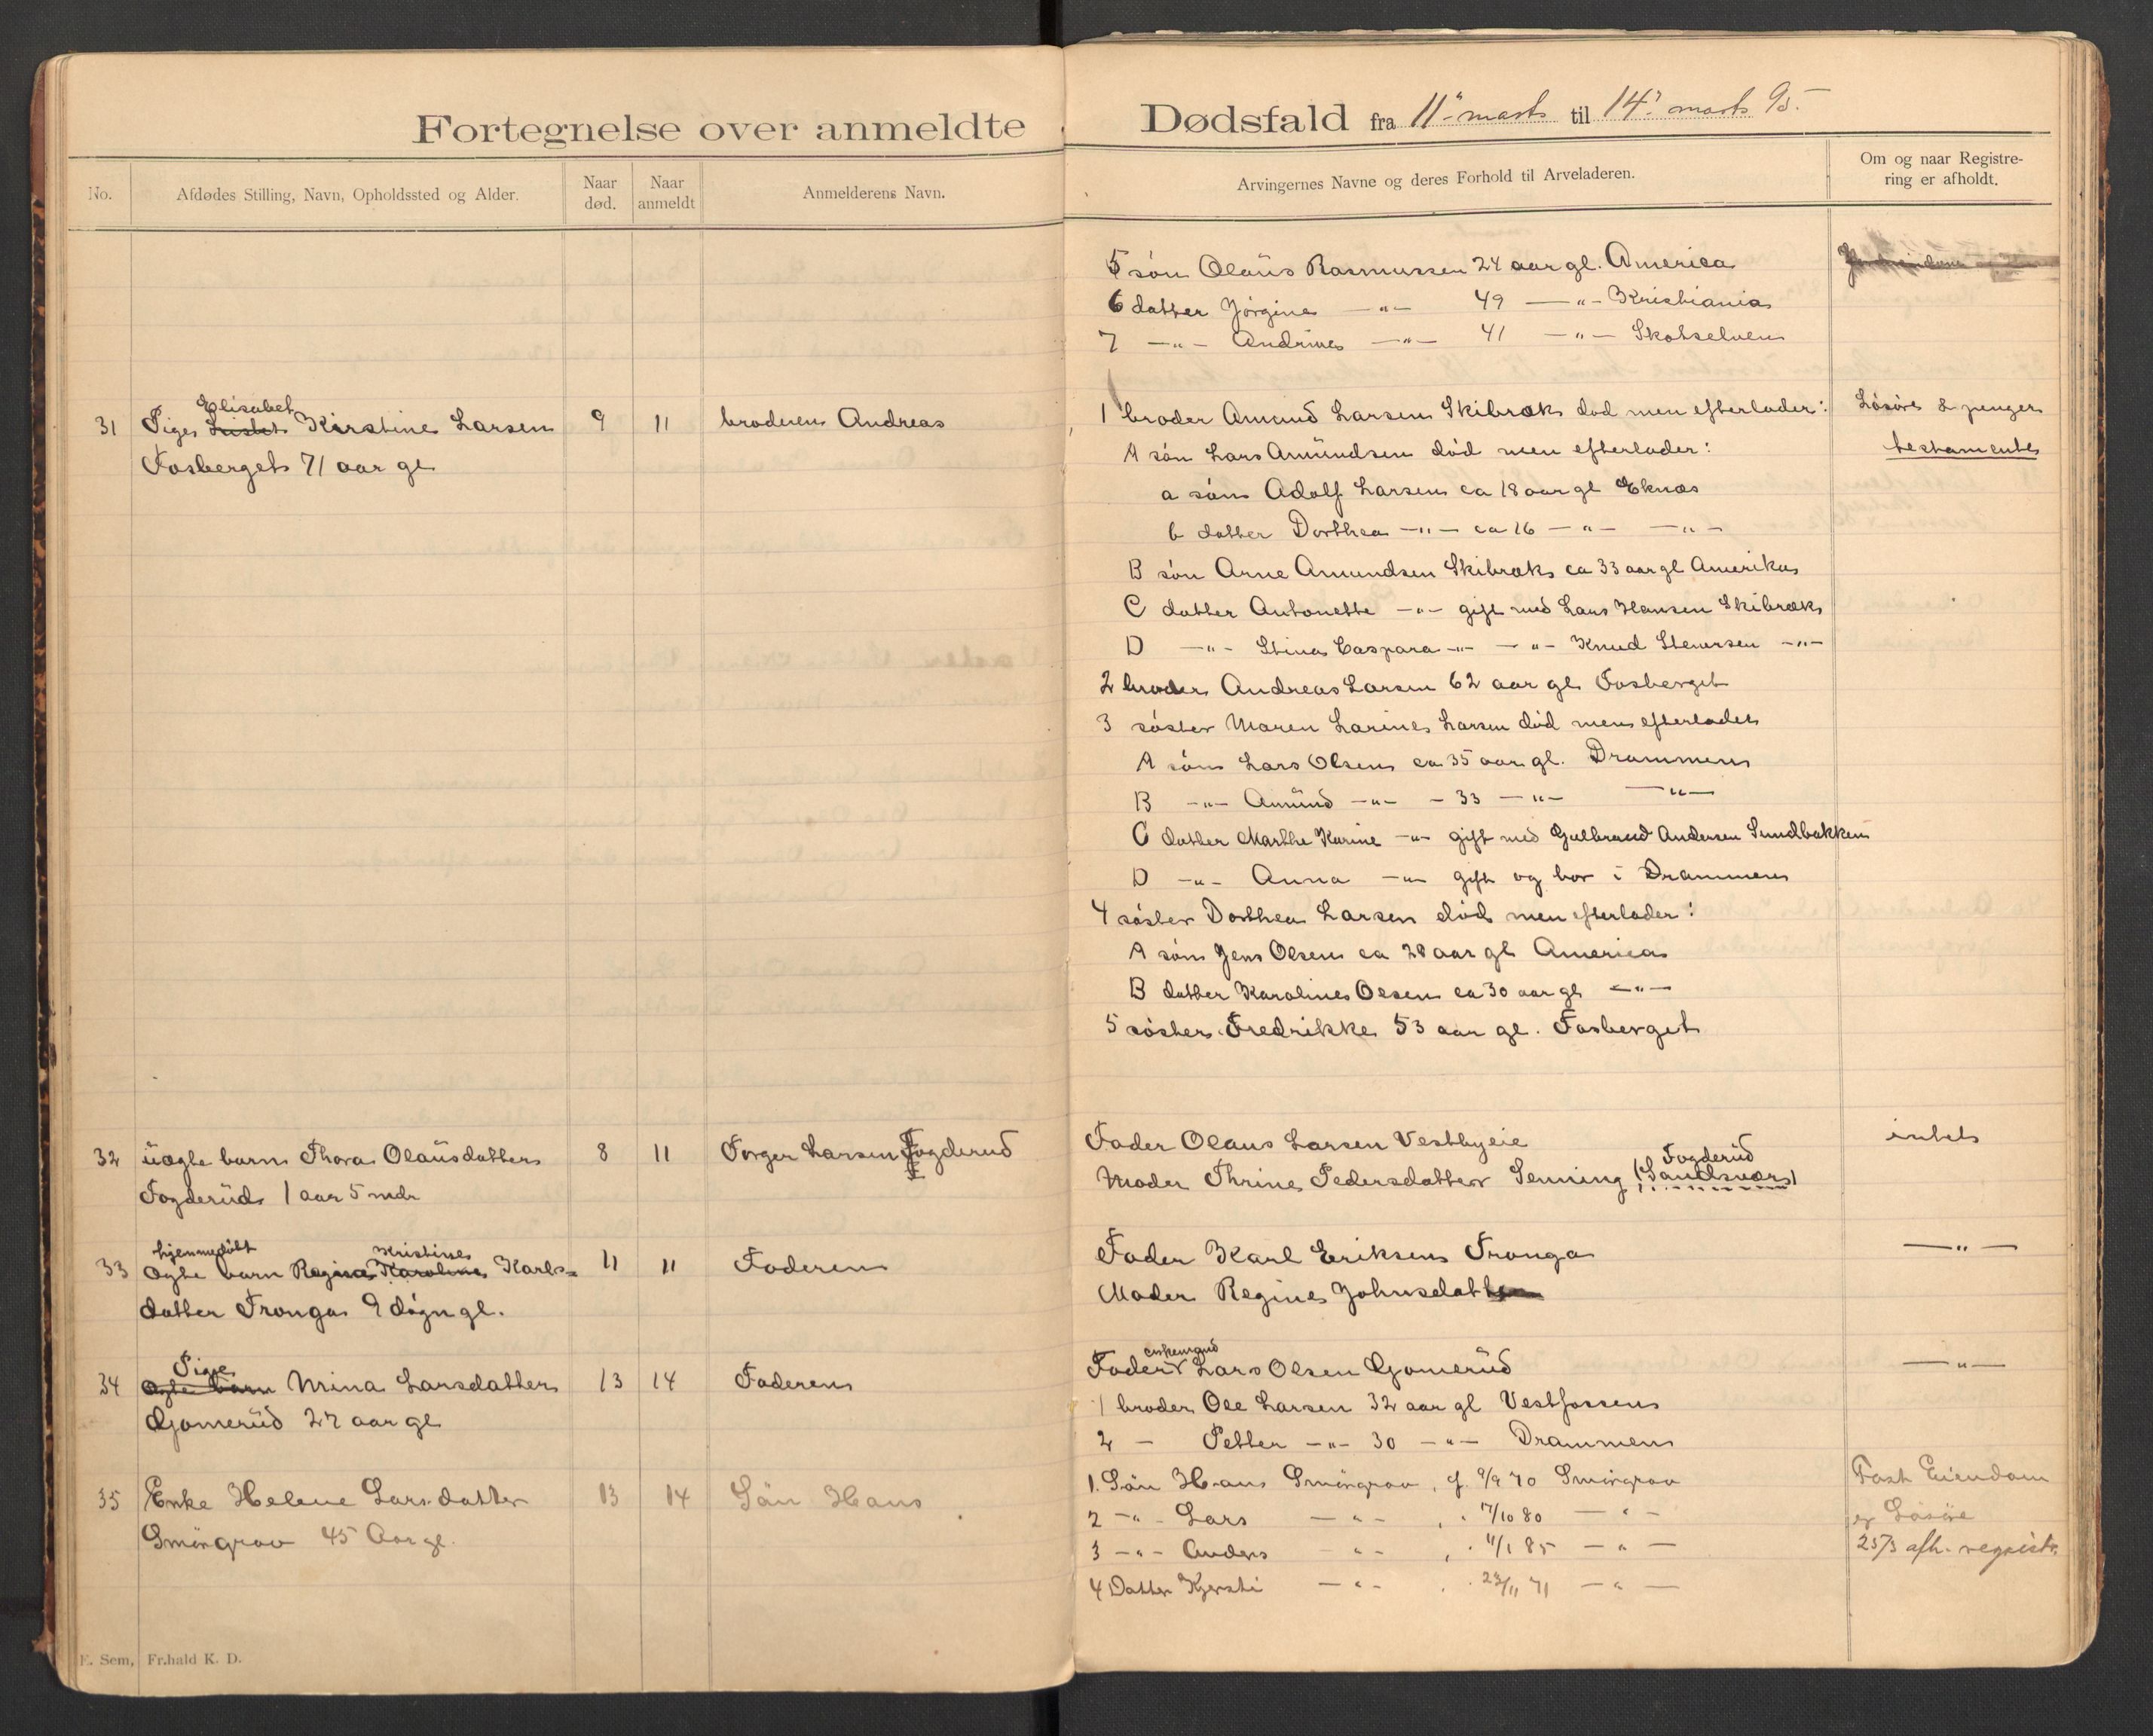 Fortegnelse over anmeldte
No.
Afdødes Stilling, Navn, Opholdssted og Alder.
Naar død.
Naar anmeldt
Anmelderens Navn.
31 Pige Elisabet Kirstine Larsen 9 11 broderen Andreas
Fosberget 71 aar gl
32 uægte barn Thora Olaüsdatter 8 11 Torger Larsen Fogderud
Fogderüd 1 aar 5 mdr
hjemmedöbt Kristine
33 ægte barn Regine Karoline Karls=
datter Fronga 9 dögn gl. 11 11 Faderen
Pige
34 ægte barn Mina Larsdatter 13 14 Faderen
Gomerüd 27 aar gl
35 Enke Helene Larsdatter 13 14 Sön Hans
Smörgrav 45 Aar gl.
E. Sem, Fr.hald K. D.
Dødsfald fra 11" marts til 14' marts 95.
Arvingernes Navne og deres Forhold til Arveladeren.
Om og naar Registre-
ring er afholdt.
5 sön Olaüs Rasmussen 24 aar gl. America
6 datter Jörgine —"— 49 —"— Kristiania
7 —"— Andrine —"— 41 —"— Skotselven
1 broder Amund Larsen Skibræk död men efterlader: Lösöre & penger
A sön Lars Amündsen död men efterlader: testamente
a sön Adolf Larsen ca 18 aar gl Eknæs
b datter Dorthea —"— ca 16 —"— —"—
B sön Arne Amundsen Skibræk ca 33 aar gl Amerika
C datter Antonette —"— gift med Lars Hansen Skibræk
D —"— Stina Caspara —"— —"— Knud Stenersen —"—
2 broder Andreas Larsen 62 aar gl Fosberget
3 söster Maren Larine Larsen död men efterlader
A sön Lars Olsen ca 35 aar gl. Drammen
B —"— Amünd —"— - 33 —"— —"—
C datter Marthe Karine —"— gift med Gulbrand Andersen Sundbakken
D —"— Anna —"— gift og bor i Drammen
4 söster Dorthea Larsen död men efterlader:
A sön Jens Olsen ca 28 aar gl America
B datter Karoline Olsen ca 30 aar gl —"—
5 söster Fredrikke 53 aar gl. Fosberget
Fader Olaus Larsen Vestbyeie intet
Moder Thrine Pedersdatter Senning (Sandsvær) Fogderüd
Fader Karl Eriksen Fronga —"—
Moder Regine Johnsdatter
enkemand
Fader Lars Olsen Gomerüd —"—
1 broder Ole Larsen 32 aar gl Vestfossen
2 — Petter —"— 30 —"— Drammen
1. Sön Hans Smörgrav, f. 9/9 70 Smörgrav Fast Eiendom
2 —"— Lars —"— " 7/10 80 —"— og Lösöre
3 —"— Anders —"— " 4/1 85 —"— 25/3 afh. registr.
4 Datter Kjersti —"— " 23/11 71 —"—